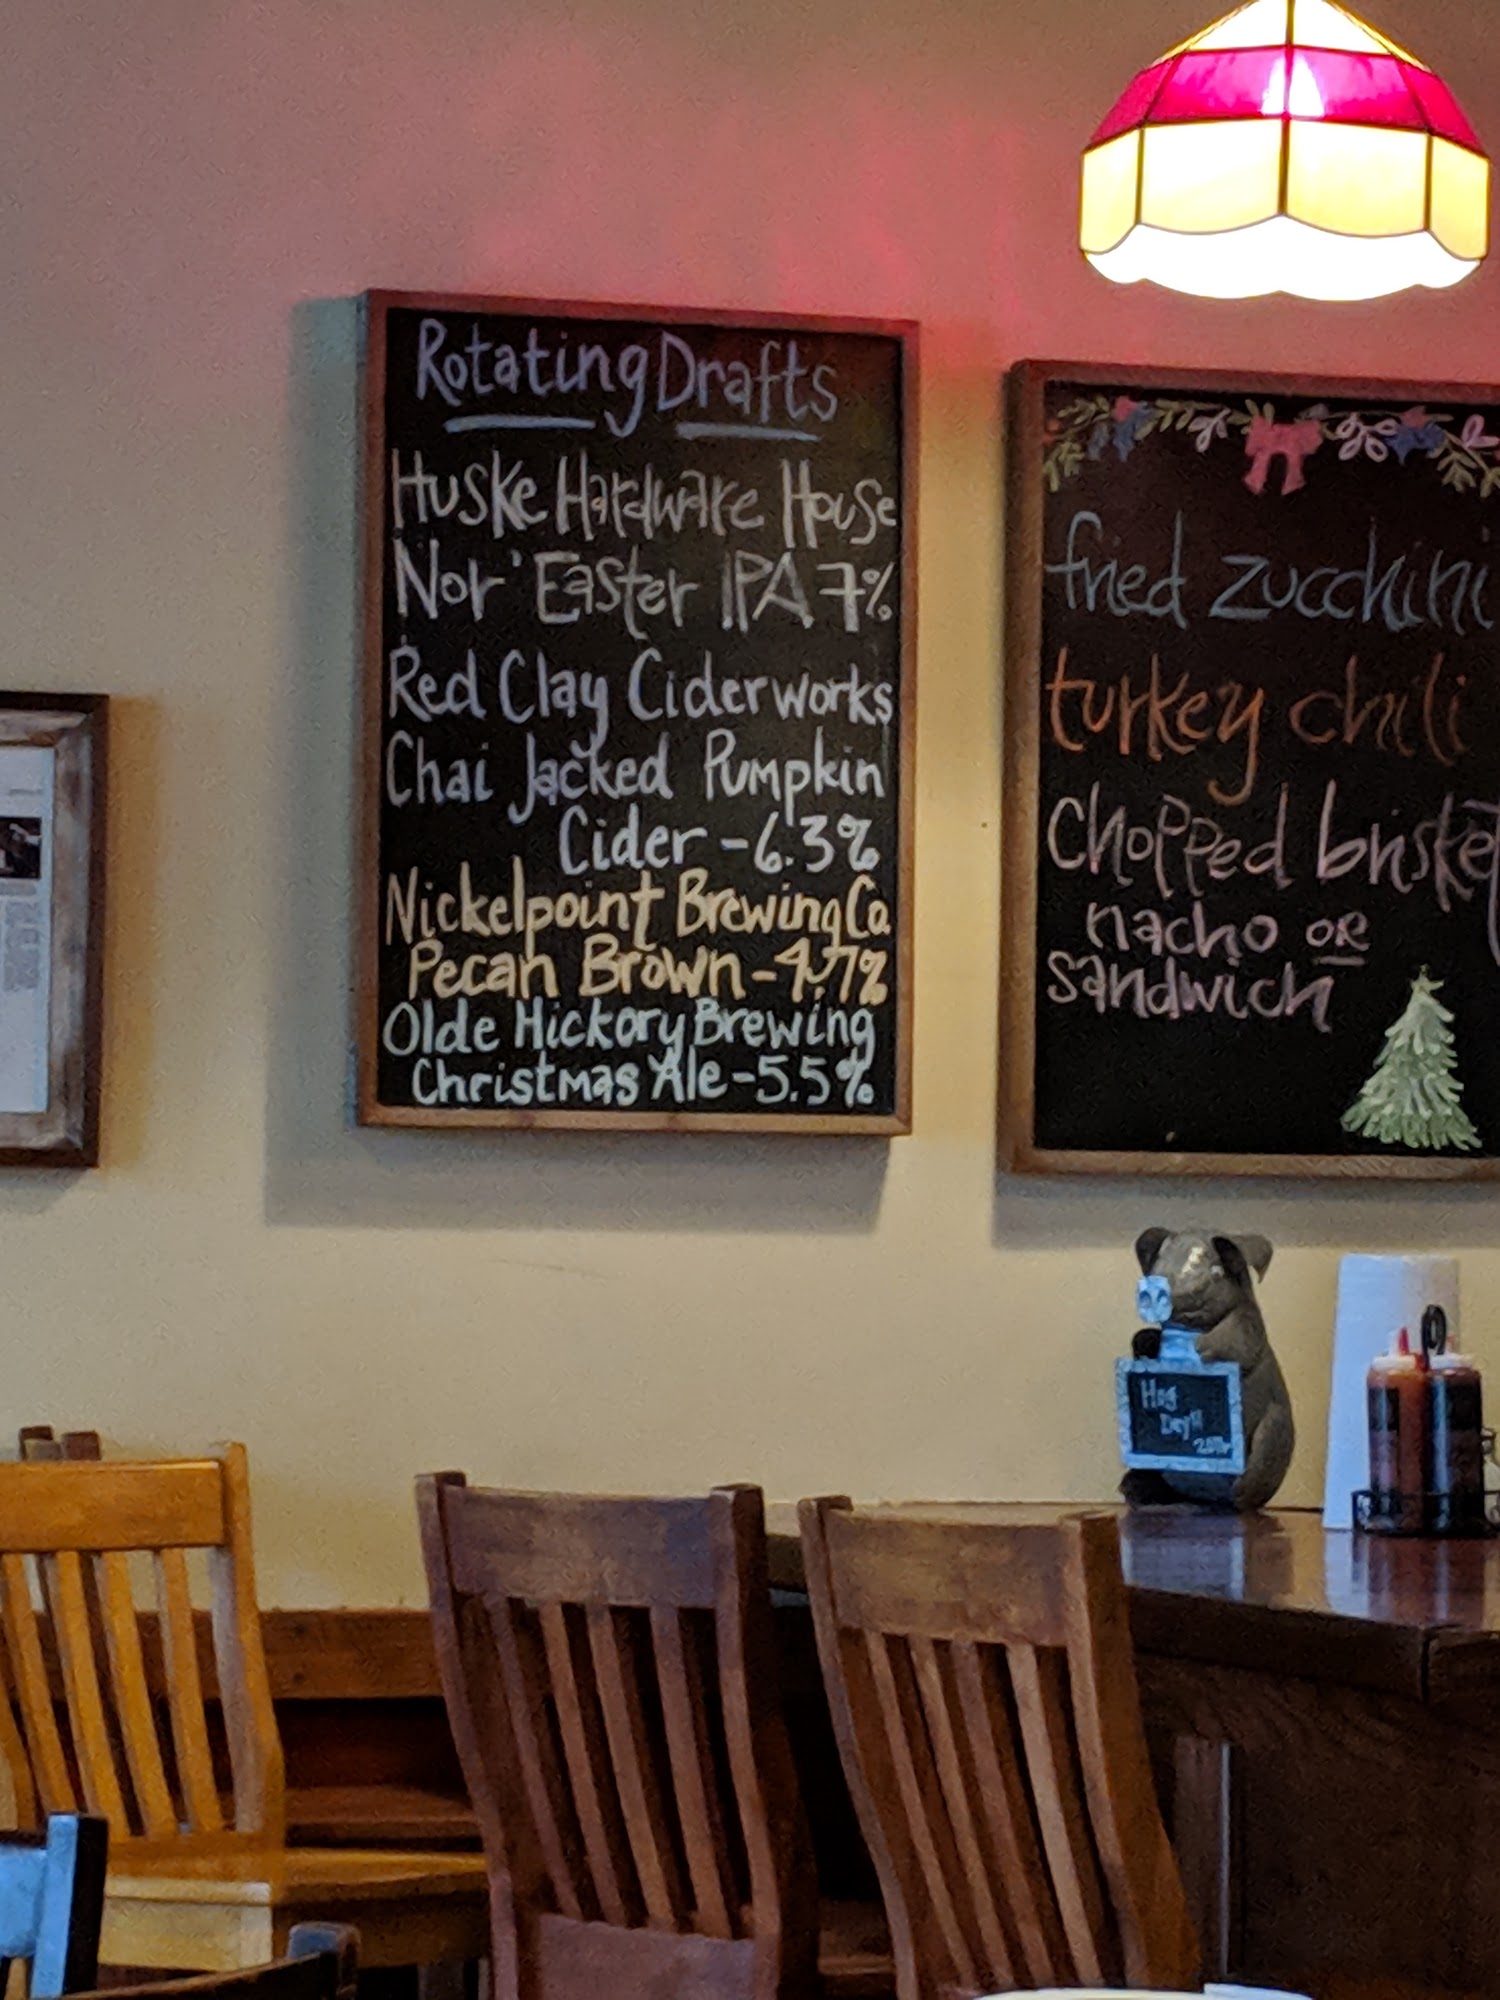 Rotating Drafts
Huske Hardware House
Nor'Easter IPA 7%
Red Clay Ciderworks
Chai Jacked Pumpkin
Cider - 6.3%
Nickelpoint Brewing Co
Pecan Brown - 4.7%
Olde Hickory Brewing
Christmas Ale - 5.5%
fried zucchini
turkey chili
Chopped brisket
nacho OR
sandwich
Hog